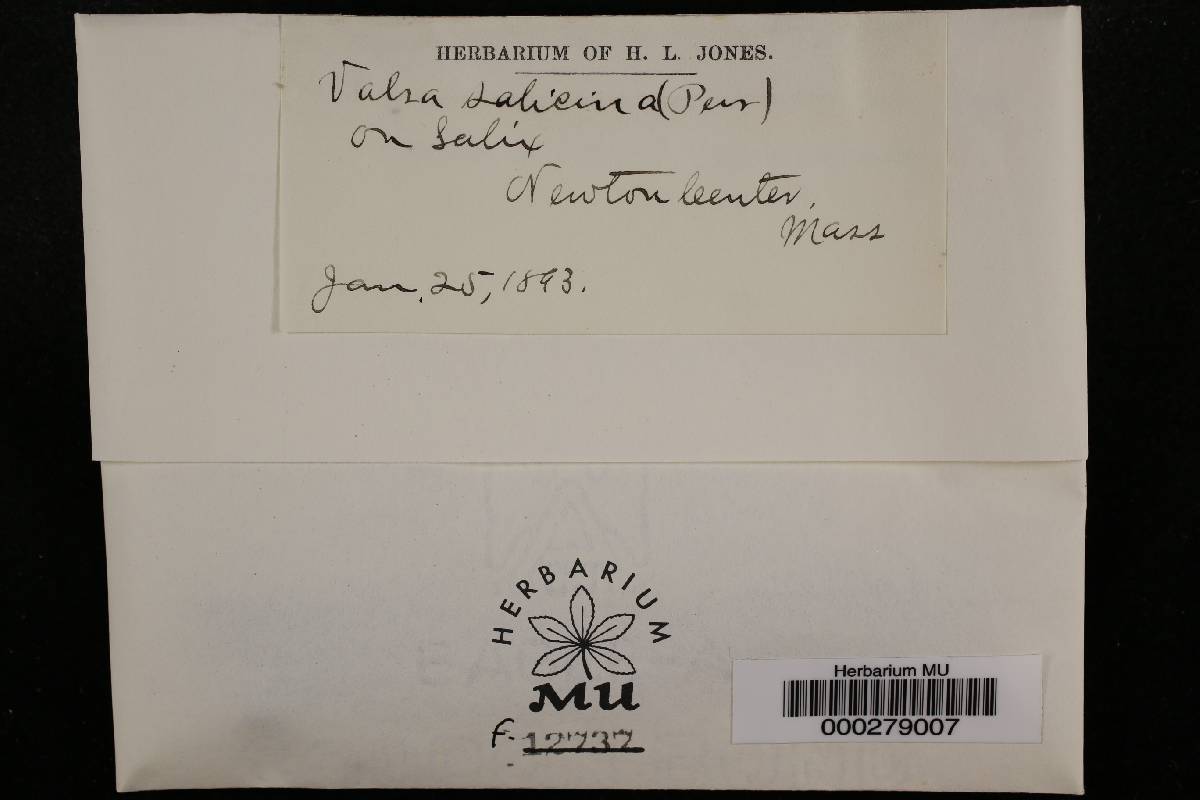 HERBARIUM OF H. L. JONES.
Valsa salicina (Pers)
on Salix
Newton Center,
Mass
Jan. 25, 1893.
HERBARIUM
MU
f. 12737
Herbarium MU
000279007